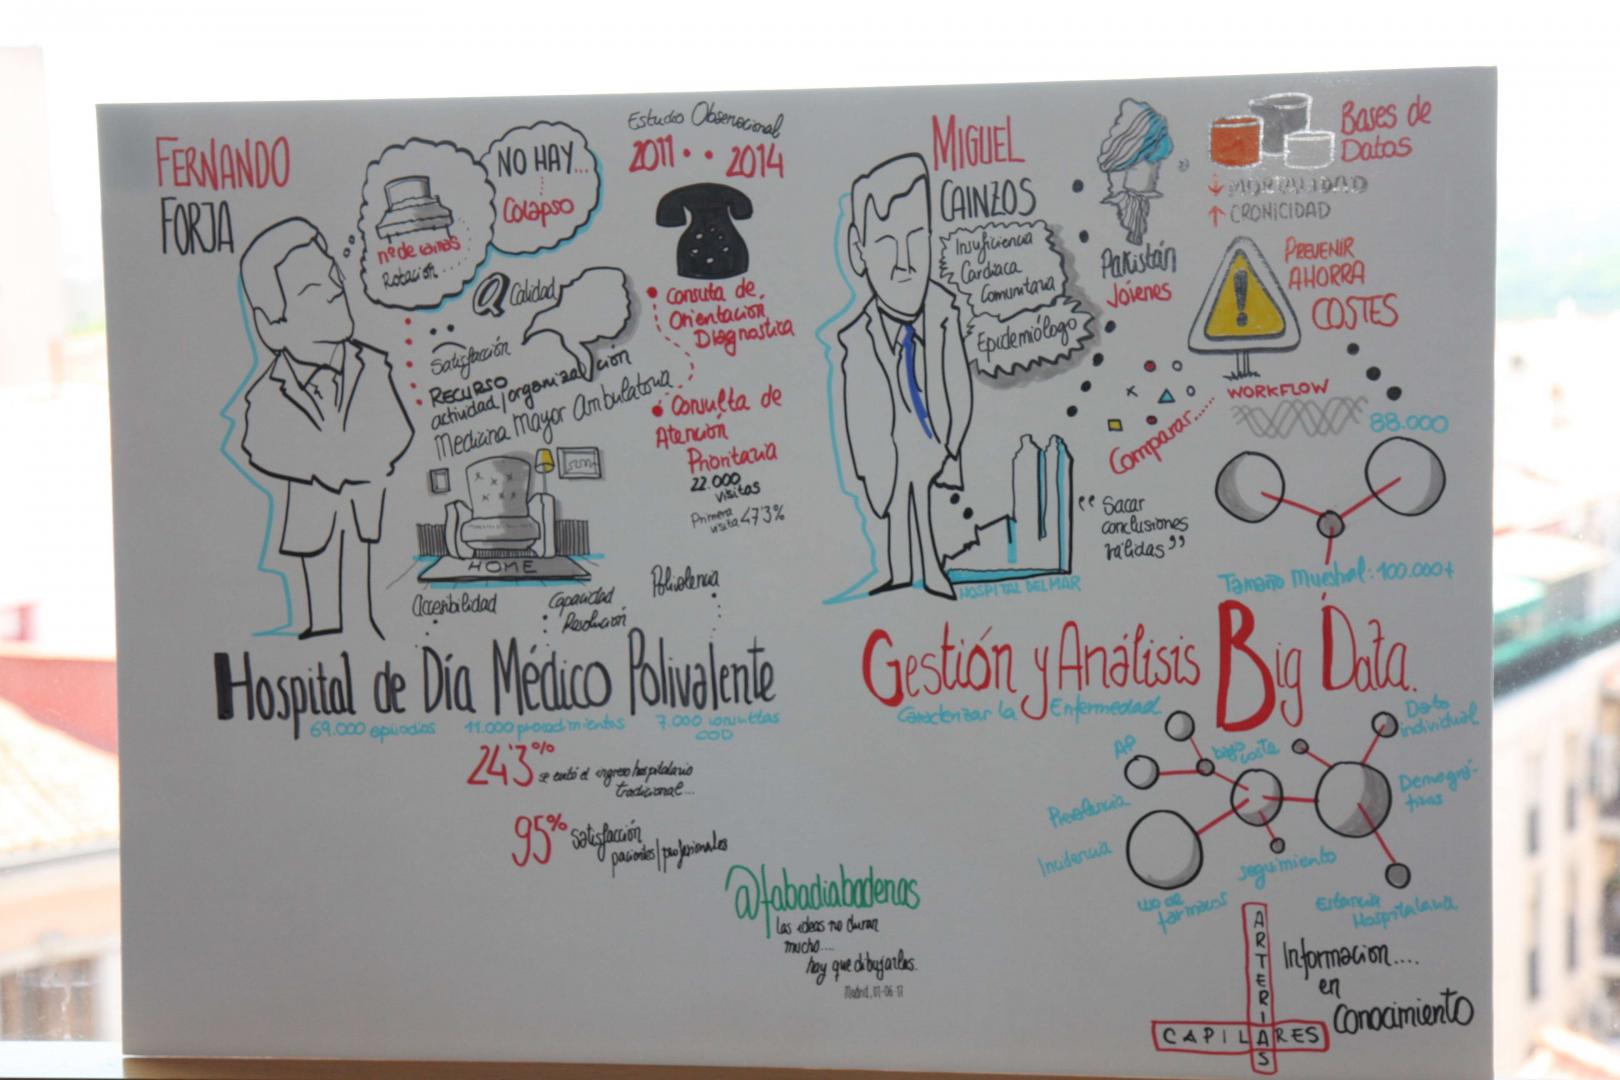 FERNANDO
FORJA
nº de camas
Rotación...
NO HAY...
Colapso
Calidad
Satisfacción
RECURSO
actividad/organización
Medicina Mayor Ambulatoria
HOME
Accesibilidad
Capacidad
Resolución
Polivalencia
Estudio Observacional
2011 · · 2014
Consulta de
Orientación
Diagnostica
Consulta de
Atención
Prioritaria
22.000
visitas
Primera
visita 47'3%
Hospital de Día Médico Polivalente
69.000 episodios
11.000 procedimientos
7.000 consultas
COD
24'3%
se evitó el ingreso hospitalario
tradicional...
95%
satisfacción
pacientes/profesionales
@fabadiabadenas
las ideas no duran
mucho....
hay que dibujarlas.
Madrid, 01-06-17
MIGUEL
CAINZOS
Insuficiencia
Cardiaca
Comunitaria
Epidemiólogo
Pakistán
Jóvenes
Bases de
Datos
MORTALIDAD
CRONICIDAD
PREVENIR
AHORRA
COSTES
WORKFLOW
Comparar.....
88.000
"Sacar
conclusiones
válidas"
HOSPITAL DEL MAR
Tamaño Muestral: 100.000+
Gestión y Análisis Big Data.
Caracterizar la Enfermedad
AP
bajo
coste
Dato
individual
Demográ-
Prevalencia
Incidencia
uso de
fármacos
seguimiento
Estancia
Hospitalaria
ARTERIAS
CAPILARES
Información....
en
Conocimiento